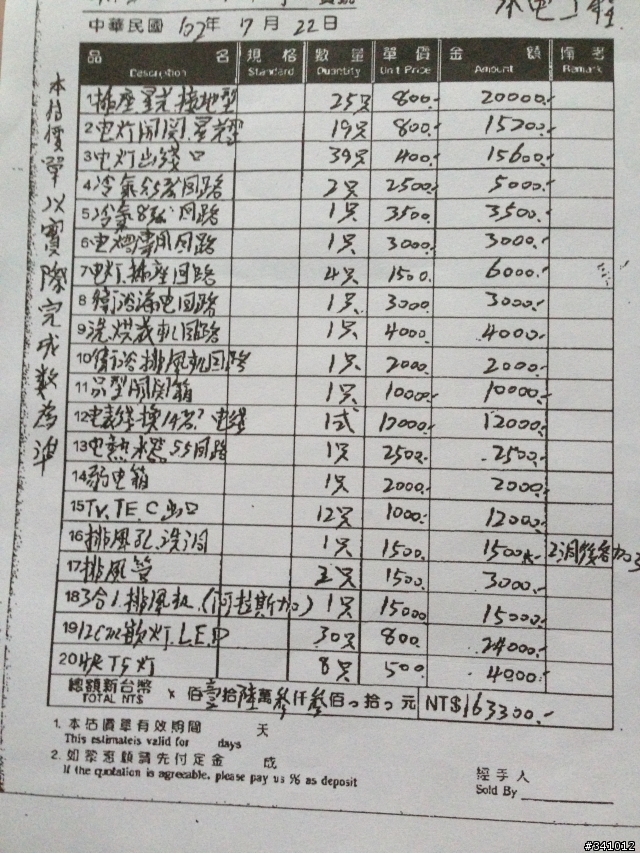 水电工程
中華民國 102年 7月 22日
品名 規格 數量 單價 金額 備考
Description Standard Quantity Unit Price Amount Remark
1 插座星光.接地型 25只 800.- 20000.-
2 电灯開関.星光 19只 800.- 15200.-
3 电灯出线口 39只 400.- 15600.-
4 冷氣5.5回路 2只 2500.- 5000.-
5 冷氣8 回路 1只 3500.- 3500.-
6 專用回路 1只 3000.- 3000.-
7 电灯.插座回路 4只 1500.- 6000.-
8 衛浴 电回路 1只 3000.- 3000.-
9 洗.烘 机回路 1只 4000.- 4000.-
10 衛浴排風机回路 1只 2000.- 2000.-
11 型開関箱 1只 10000.- 10000.-
12 电表 換14 电线 1式 12000.- 12000.-
13 电熱水器5.5回路 1只 2500.- 2500.-
14 弱电箱 1只 2000.- 2000.-
15 TV.TE.C出口 12只 1000.- 12000.-
16 排風孔.洗洞 1只 1500.- 1500.- 2洞後客加
17 排風管 2只 1500.- 3000.-
18 3合1.排風机.(阿拉斯加) 1只 15000.- 15000.-
19 12cm崁灯.LED 30只 800.- 24000.-
20 T5灯 8只 500.- 4000.-
總額新台幣 × 佰壹拾陸萬參仟參佰0拾0元 NT$163300.-
TOTAL NT$
1. 本估價單有效期間 天
This estimateis valid for days
2. 如蒙惠顧請先付定金 成
If the quotation is agreeable, please pay us % as deposit
經手人
Sold By
本估價單以實際完成數為準
#341012